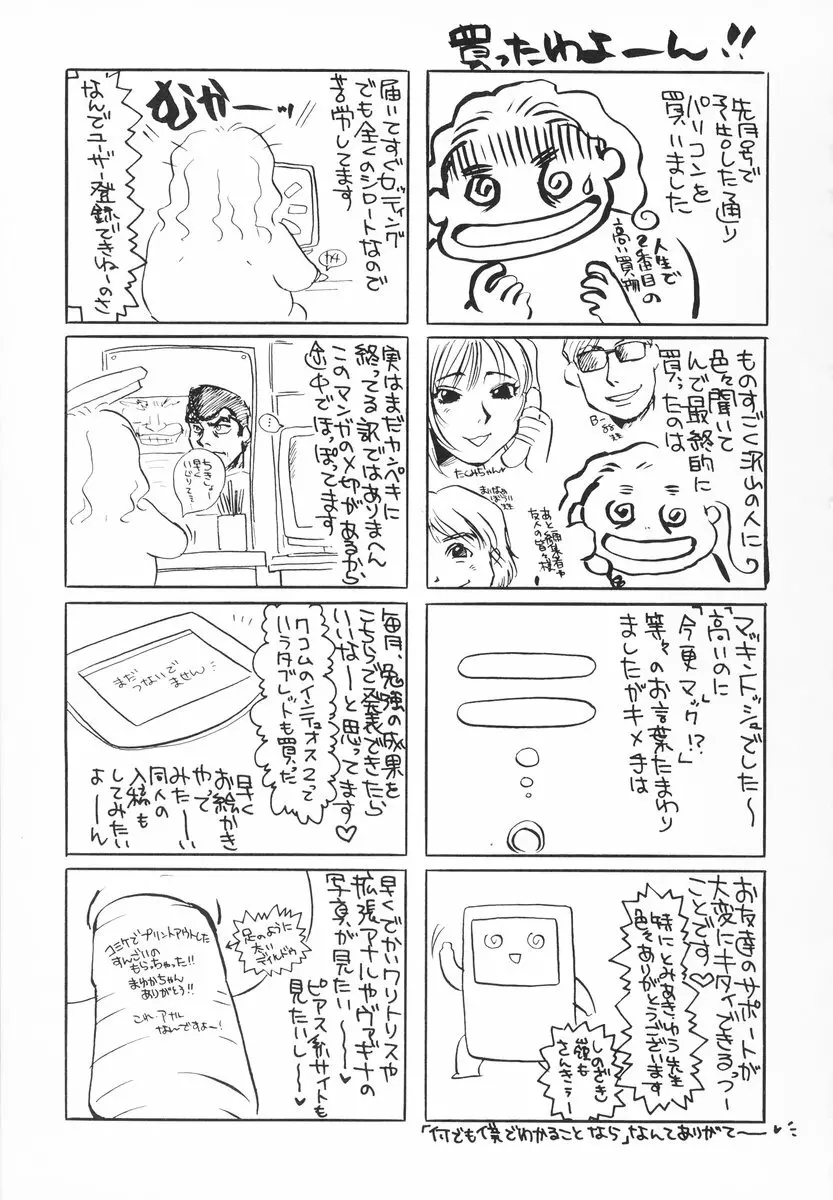 買ったわよーん!!
先月号で
予告した通り
パソコンを
買いました
人生で
2番目の
高い買物
ものすごく沢山の人に
色々聞いて
んで最終的に
買ったのは
たくみちゃん
あと編集者や
友人の皆々様
マッキントッシュでした〜
「高いのに」
「今更マック!?」
等々のお言葉たまわり
ましたがキメ手は
お友達のサポートが
大変にキタイできるっつー
ことです♡
特にとみあき・ゆう先生
色々ありがとうございます
しのざき
嶺も
さんきゅー
「何でも僕でわかることなら」なんてありがてー
届いてすぐセッティング
でも全くのシロートなので
苦労してます
むかーッ
カチ
なんでユーザー登録できねーのさ
実はまだカンペキに
終ってる訳ではありまへん
このマンガの〆切があるから
途中でほっぽってます
ちきしょー
早く
いじりてー
毎月、勉強の成果を
こちらで発表できたら
いいなーと思ってます♡
ワコムのインテュオス2って
いうタブレットも買った
まだ
つないで
ません
早く
お絵かき
やって
みたーい
同人の
入稿も
してみたい
よーん
早くでかいクリトリスや
拡張アナルやヴァギナの
写真が見たい〜♥
ピアス系サイトも
見たいし〜♥
足のように
太い
ディルドウ
コミケでプリントアウトした
すんごいの
もらっちゃった!!
まゆかちゃん
ありがとう!!
これ、アナル
なんですよー!